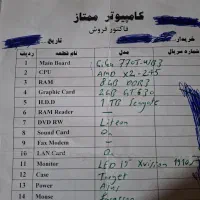 کامپیوتر ممتاز
فاکتور فروش
خریدار
تاریخ
ردیف نام قطعه مدل شماره سریال
1 Main Board Giga 770T-UD3
2 CPU AMD X2-245
3 RAM 8GB DDR3
4 Graphic Card 2GB GT 630
5 H.D.D 1 TB Seagate
6 RAM Reader
7 DVD RW Liteon
8 Sound Card On
9 Fax Modem -
10 LAN Card On
11 Monitor LED 19 Xvision
12 Case Target
13 Power
14 Mouse